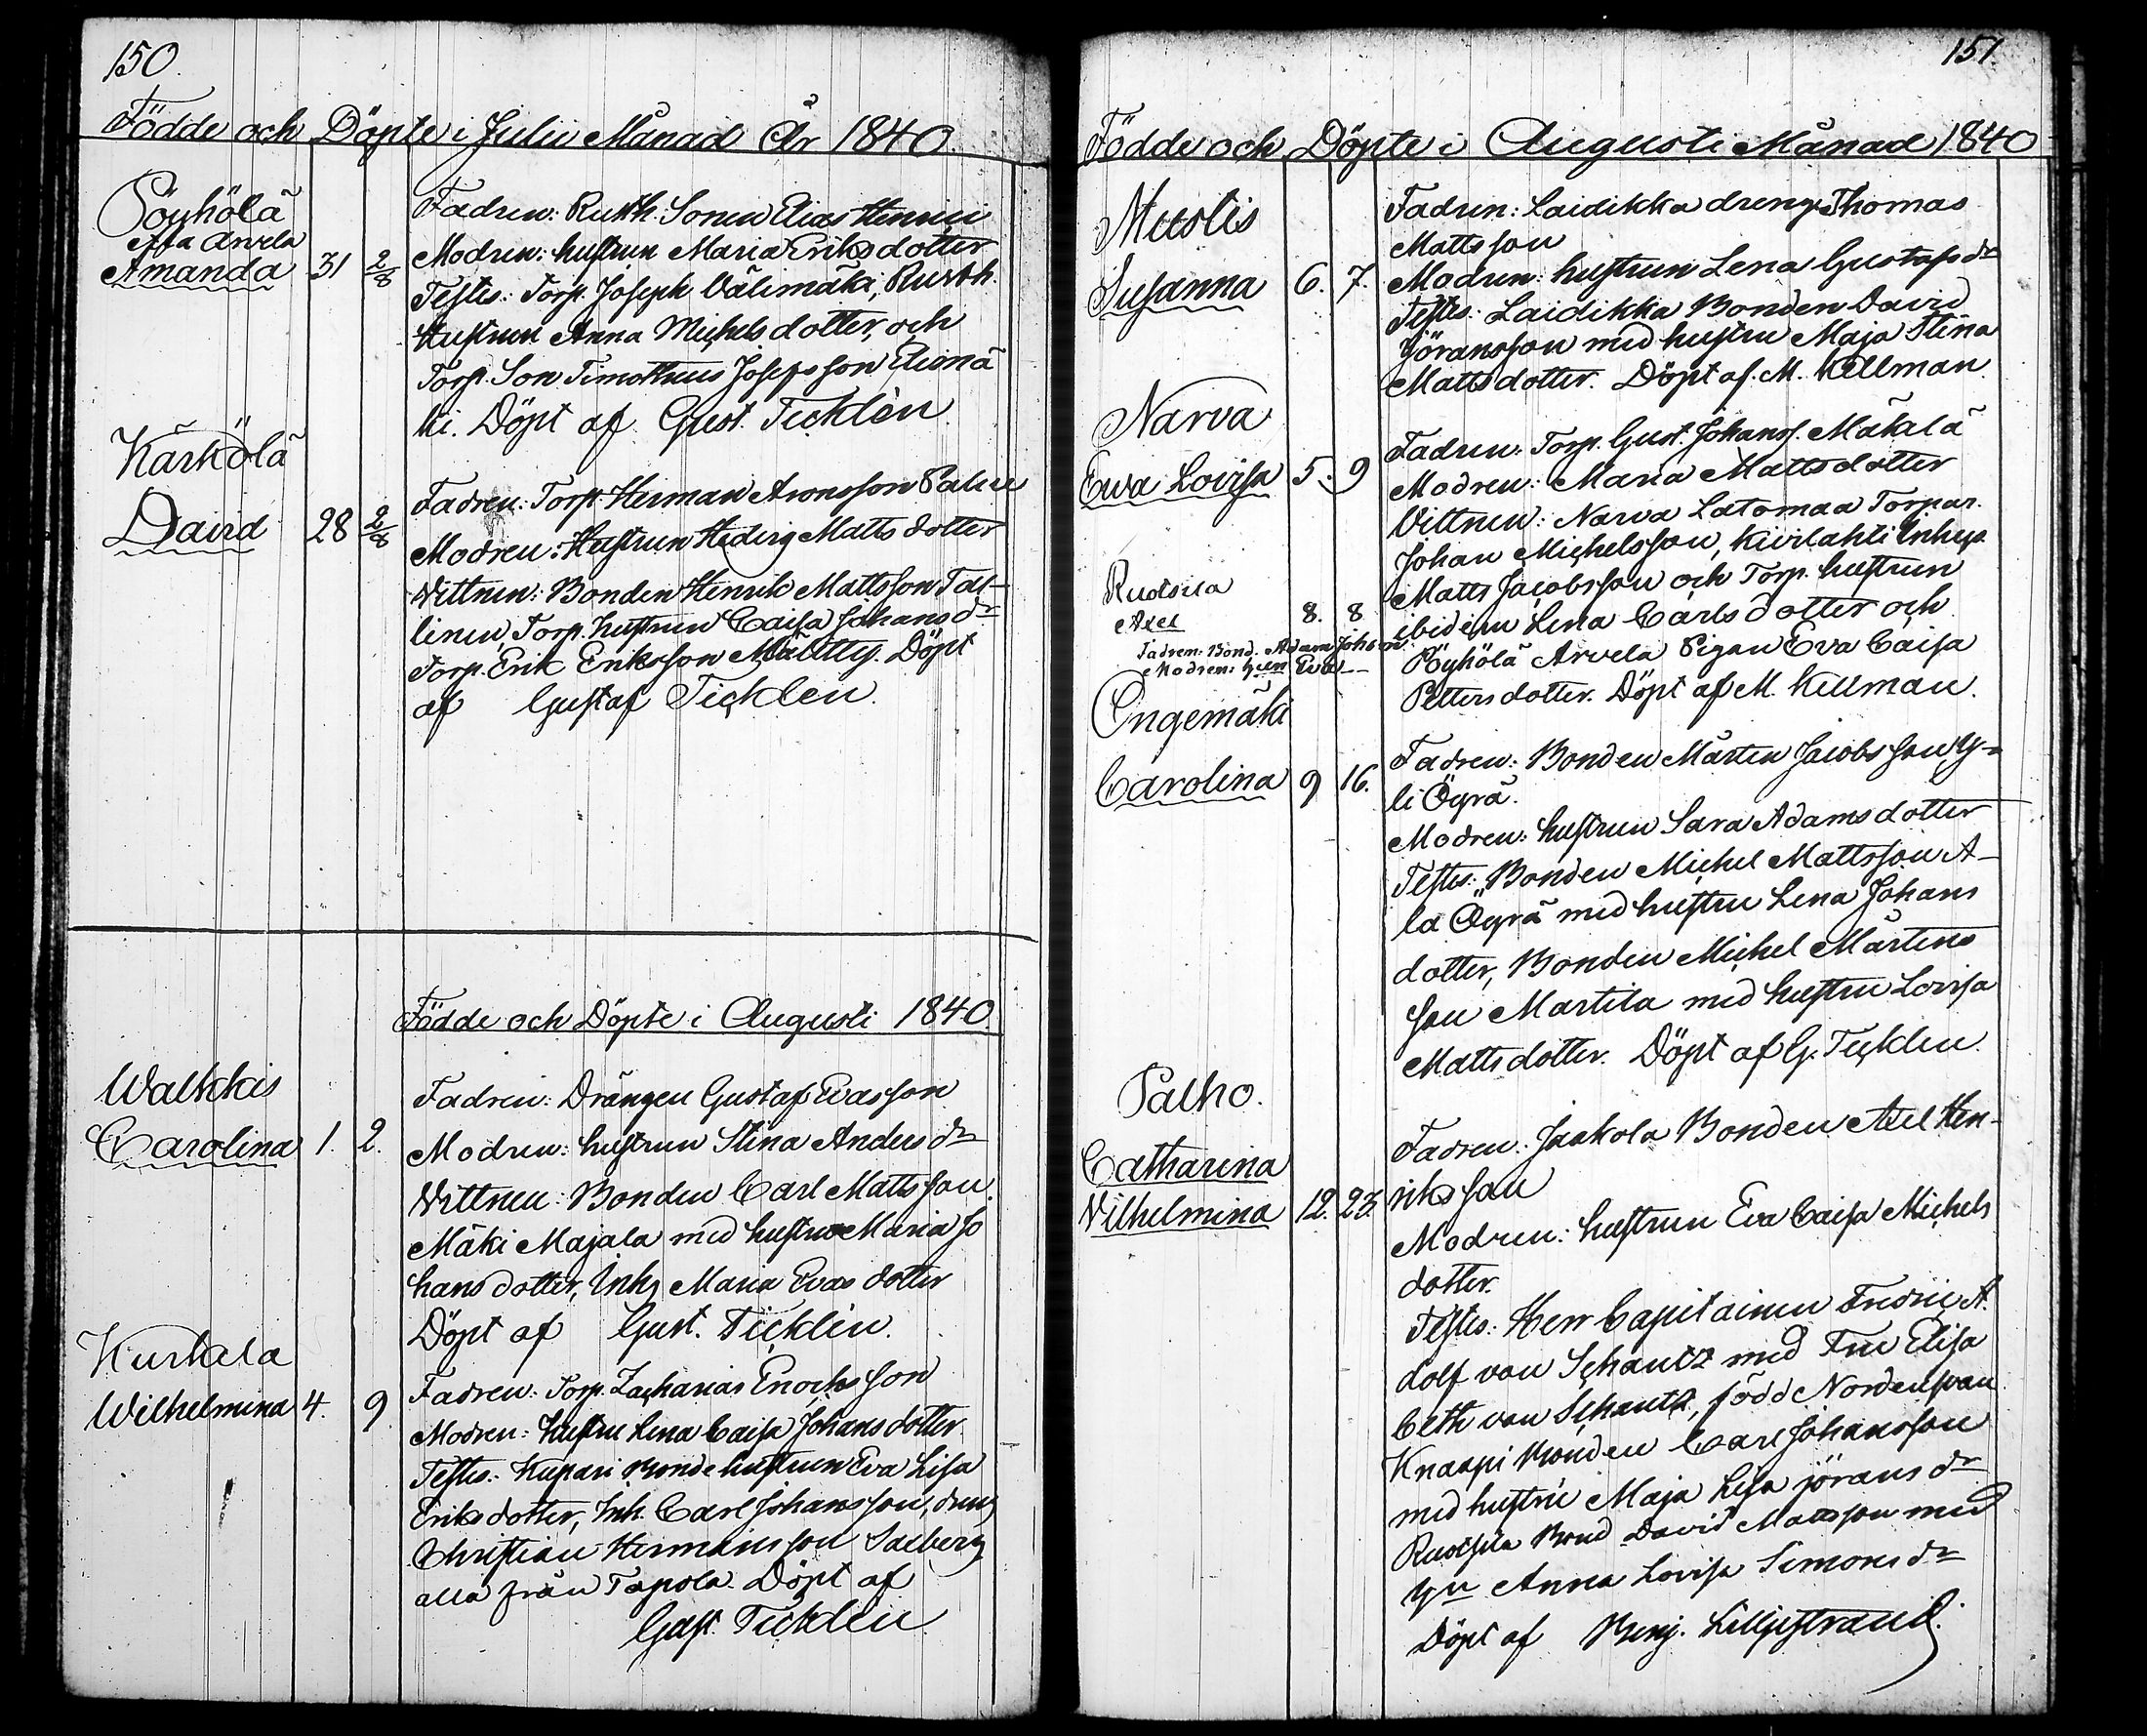 150.
Födde och Döpte i Julii Månad År 1840.
Pöyhölä
Arvela
Amanda 31 2/8
Fadren: Rusth. Sonen Elias Henrici
Modren: hustrun Maria Eriksdotter
Testes: Torp. Joseph Välimäki, Rusth.
Hustrun Anna Michelsdotter, och
Torp. Son Timotheus Josephsson Elomä
ki. Döpt af Gust. Ticklén.
Kärkölä
David 28 2/8
Fadren: Torp. Herman Aronsson
Modren: Hustrun Hedvig Matts dotter
Vittnen: Bonden Henrik Mattsson Tal-
linen, Torp. hustrun Caisa Johansdr
Torp. Erik Eriksson Mäntty. Döpt
af Gustaf Ticklén.
Födde och Döpte i Augusti 1840
Walkkis
Carolina 1. 2.
Fadren: Drängen Gustaf Evasson
Modren: hustrun Stina Anders dr
Vittnen: Bonden Carl Mattsson
Mäki Majala med hustru Maria Jo
hansdotter, Inh. Maria Evas dotter
Döpt af Gust. Ticklén.
Kurkela
Wilhelmina 4. 9
Fadren: Torp. Zacharias Enochsson
Modren: Hustru Lena Caisa Johansdotter
Testes: Kupari Bondehustrun Eva Lisa
Eriksdotter, Inh. Carl Johansson, dreng
Christian Hermansson Salberg
alla från Tapola. Döpt af
Gust. Ticklén
151.
Födde och Döpte i Augusti Månad 1840
Mustis
Susanna 6. 7.
Fadren: Laidikka dreng Thomas
Mattsson
Modren: hustrun Lena Gustafsdr
Testes: Laidikka Bonden David
Göransson med hustru Maja Stina
Mattsdotter. Döpt af M. Kellman.
Narva
Ewa Lovisa 5. 9
Fadren: Torp. Gust. Johanss. Mäkälä
Modren: Maria Mattsdotter
Vittnen: Narva Latomaa Torpar.
Johan Michelsson, Kiirlahti Inhys.
Matts Jacobsson och Torp. hustrun
ibidem Lena Carlsdotter och
Pöyhölä Arvela Pigan Eva Caisa
Pettersdotter. Döpt af M. Kellman.
Ruotsila
Axel 8. 8
Fadren: Bond. Adam Johsson
Modren: Hun Eva —
Ongemäki
Carolina 9 16.
Fadren: Bonden Mårten Jacobsson Y-
li Äyrä.
Modren: hustrun Sara Adamsdotter
Testes: Bonden Michel Mattsson A-
la Äyrä med hustru Lena Johans
dotter, Bonden Michel Mårtens
son Martila med hustru Lovisa
Mattsdotter. Döpt af G. Ticklén.
Palho.
Catharina
Vilhelmina 12. 23.
Fadren: Jaakola Bonden Axel Hen-
riksson
Modren: hustrun Eva Caisa Michels
dotter.
Testes: Herr Capitainen Fredric A.
dolf von Schantz med Fru Elisa
beth von Schantz, född Nordensvan
Knaapi Bonden Carl Johansson
med hustru Maja Lisa Jöransdr
Ruotsila Bond David Mattsson med
Hu Anna Lovisa Simonsdr
Döpt af Benj. Lilljestrand.